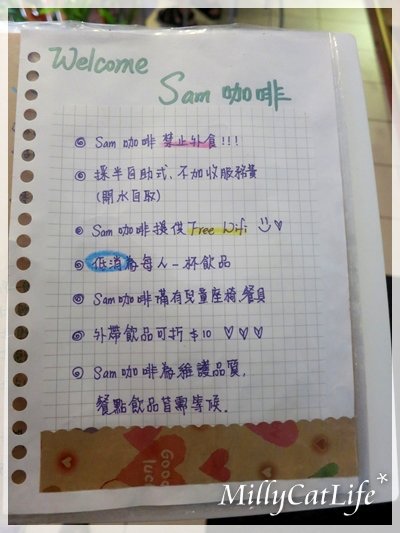 Welcome
Sam 咖啡
◎ Sam 咖啡 禁止外食!!!
◎ 採半自助式、不加收服務費
(開水自取)
◎ Sam 咖啡提供 Free Wifi
◎ 低消為每人一杯飲品
◎ Sam 咖啡備有兒童座椅.餐具
◎ 外帶飲品可折 $10 ♡♡♡
◎ Sam 咖啡為維護品質,
餐點飲品皆需等候.
Good
luc
MillyCatLife*